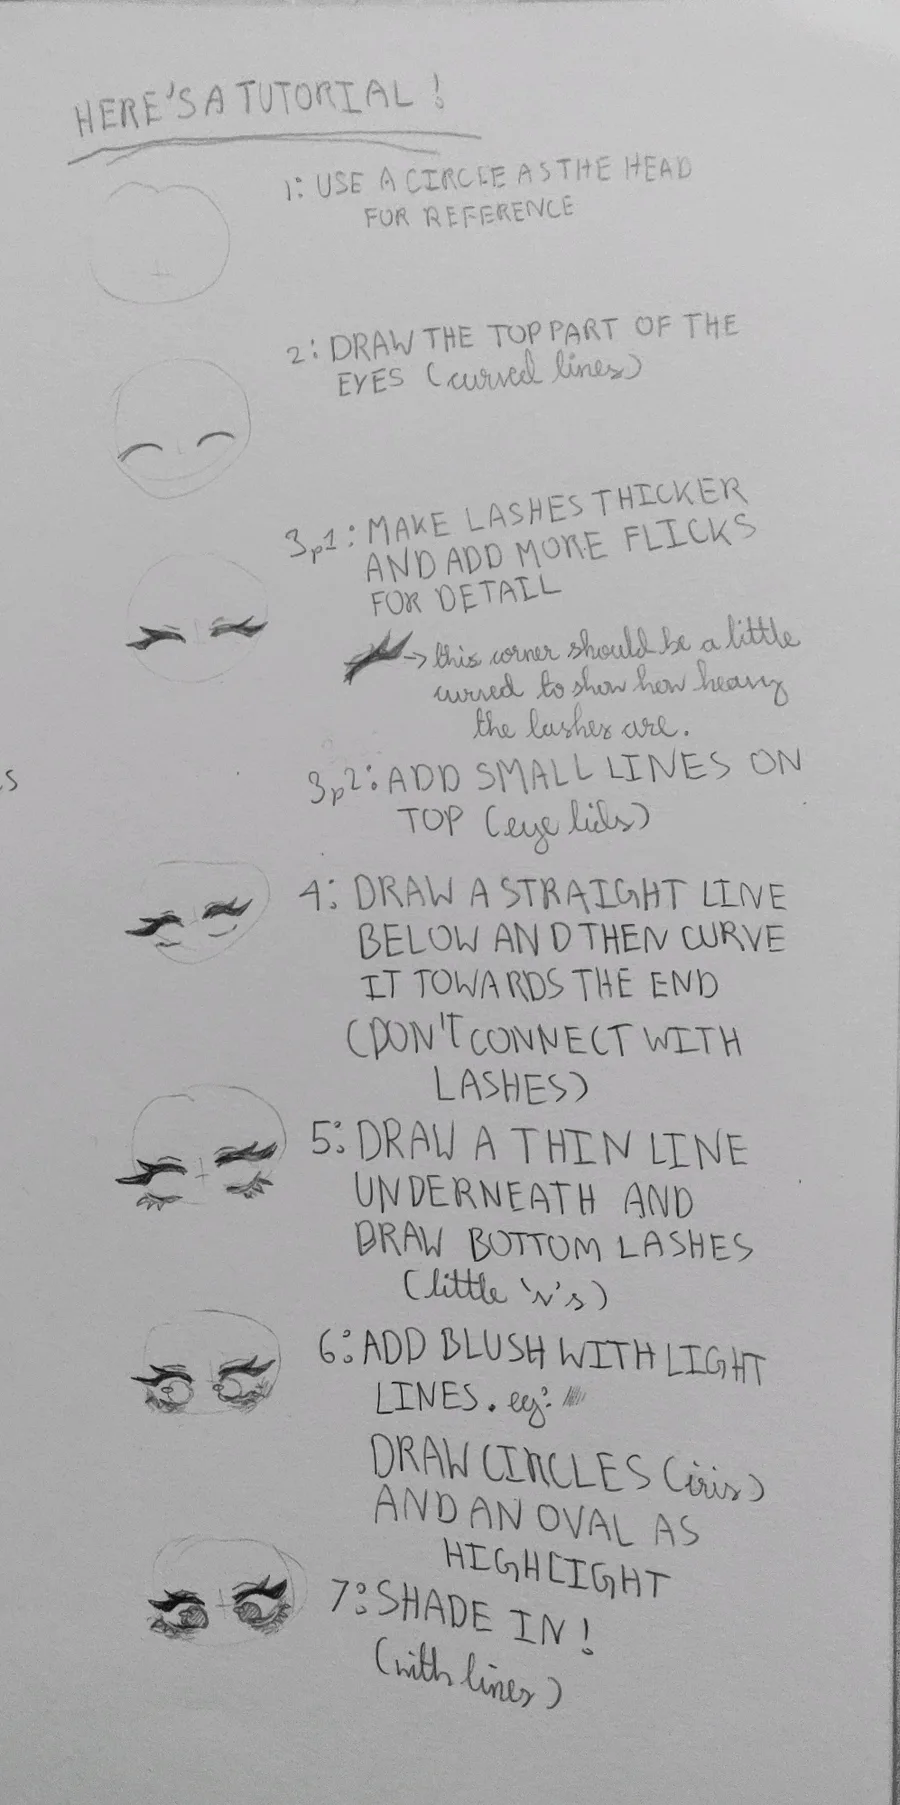 HERE'S A TUTORIAL!
1: USE A CIRCLE AS THE HEAD
FOR REFERENCE
2: DRAW THE TOP PART OF THE
EYES (curved lines)
3,p1: MAKE LASHES THICKER
AND ADD MORE FLICKS
FOR DETAIL
→ this corner should be a little
curved to show how heavy
the lashes are.
3,p2: ADD SMALL LINES ON
TOP (eye lids)
4: DRAW A STRAIGHT LINE
BELOW AND THEN CURVE
IT TOWARDS THE END
(DON'T CONNECT WITH
LASHES)
5: DRAW A THIN LINE
UNDERNEATH AND
DRAW BOTTOM LASHES
(little 'v's)
6: ADD BLUSH WITH LIGHT
LINES. eg:
DRAW CIRCLES (iris)
AND AN OVAL AS
HIGHLIGHT
7: SHADE IN!
(with lines)